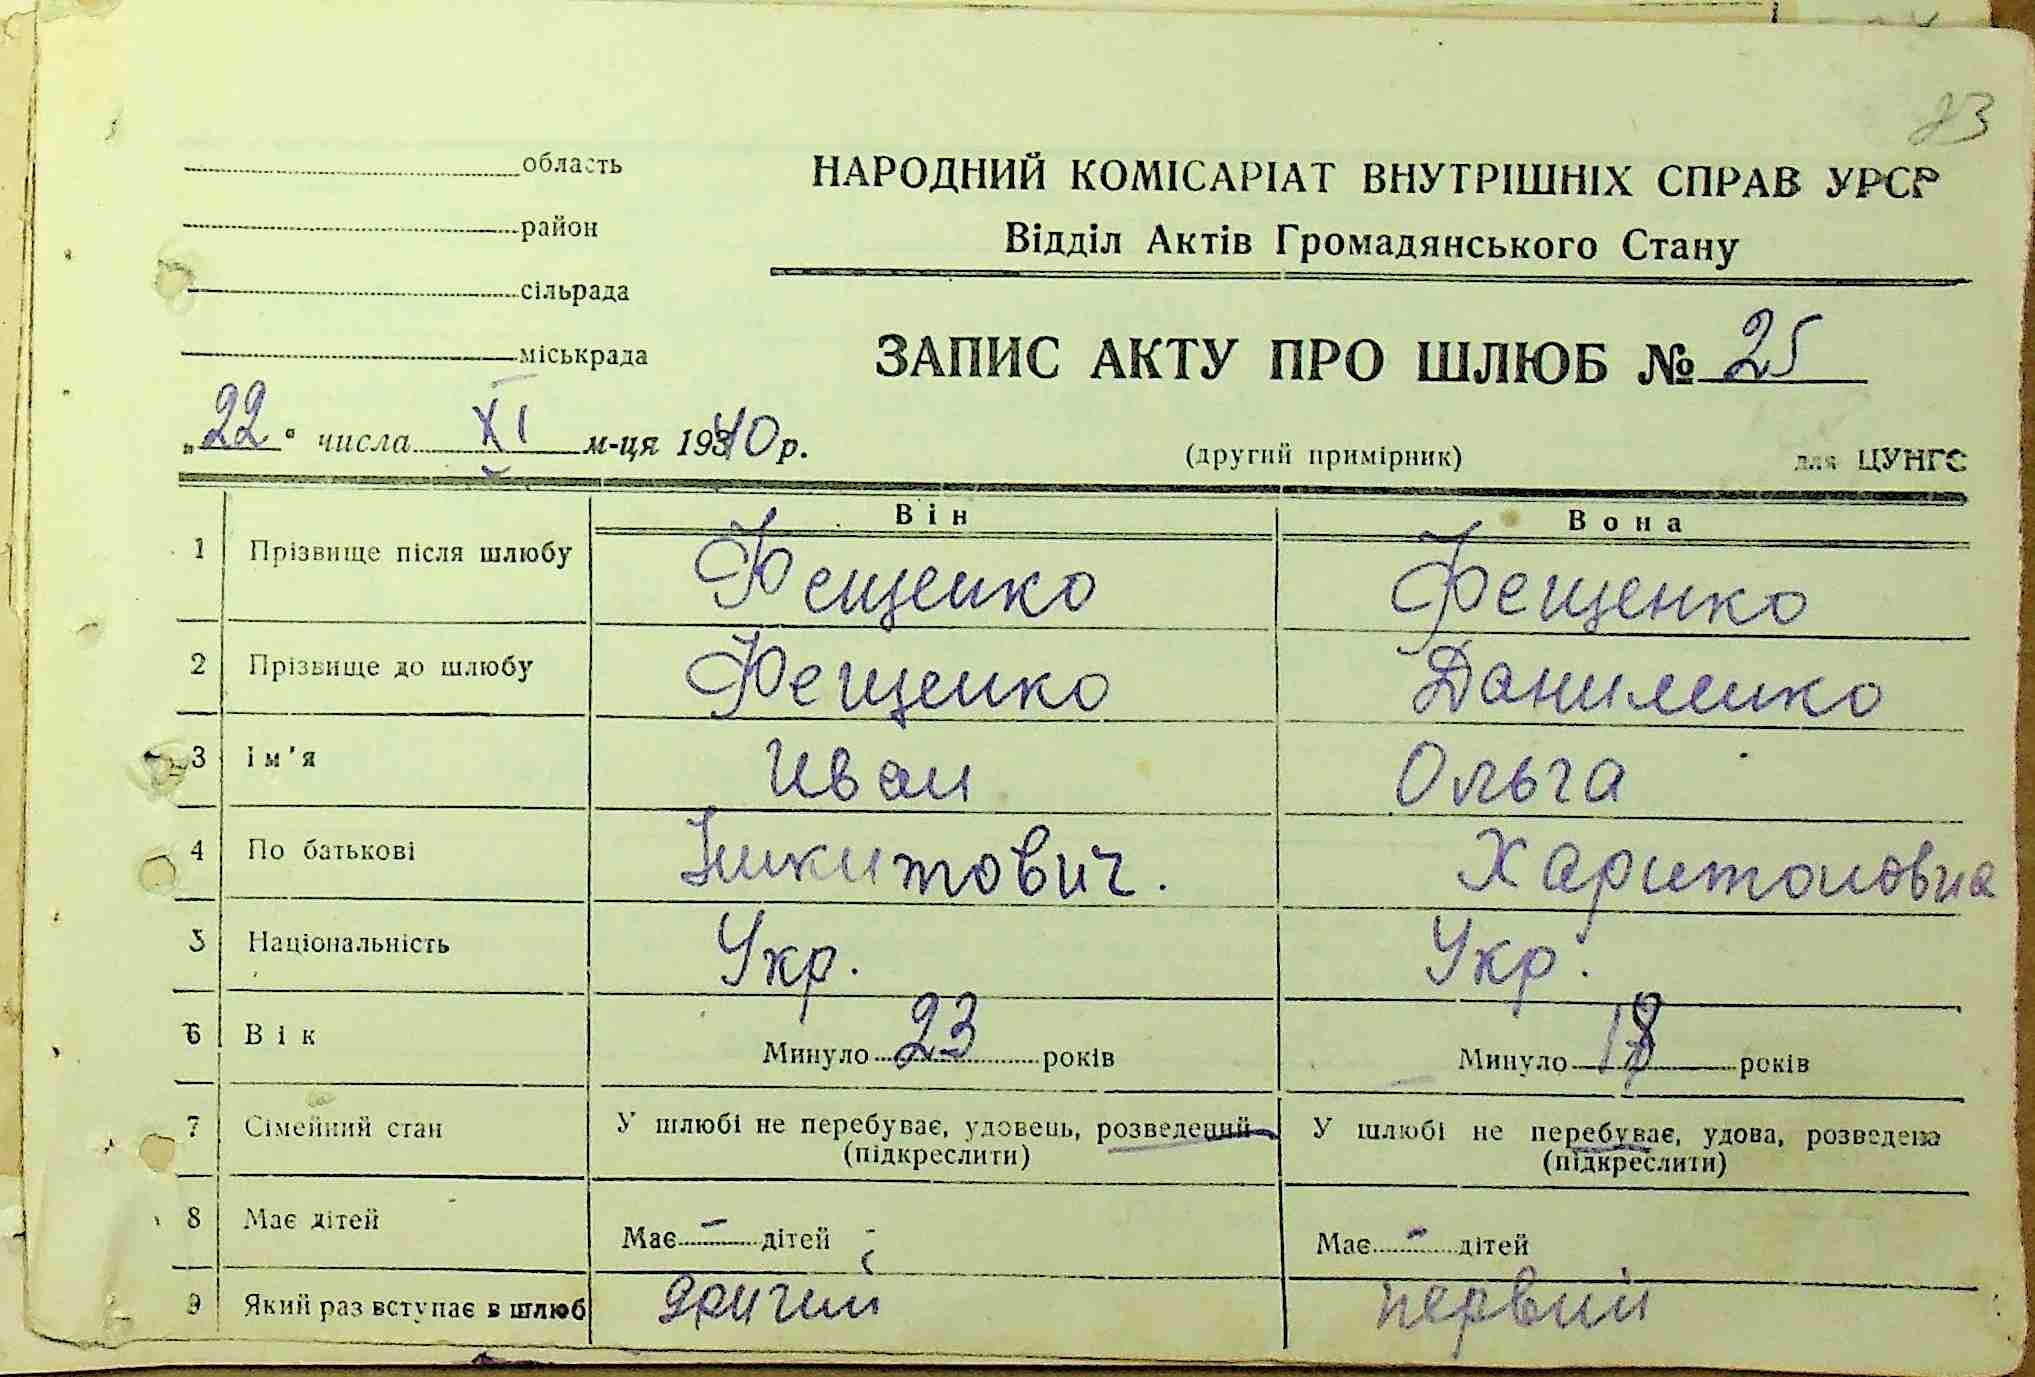 23
область
район
сільрада
міськрада
НАРОДНИЙ КОМІСАРІАТ ВНУТРІШНІХ СПРАВ УРСР
Відділ Актів Громадянського Стану
ЗАПИС АКТУ ПРО ШЛЮБ № 25
„22“ числа XI м-ця 1940 р.
(другий примірник) для ЦУНГС
Він Вона
1 Прізвище після шлюбу Фещенко Фещенко
2 Прізвище до шлюбу Фещенко Даниленко
3 Ім'я Иван Ольга
4 По батькові Никитович. Харитоновна
5 Національність Укр. Укр.
6 Вік Минуло 23 років Минуло 18 років
7 Сімейний стан У шлюбі не перебуває, удовець, розведений У шлюбі не перебуває, удова, розведена
(підкреслити) (підкреслити)
8 Має дітей Має – дітей Має – дітей
9 Який раз вступає в шлюб другий первий